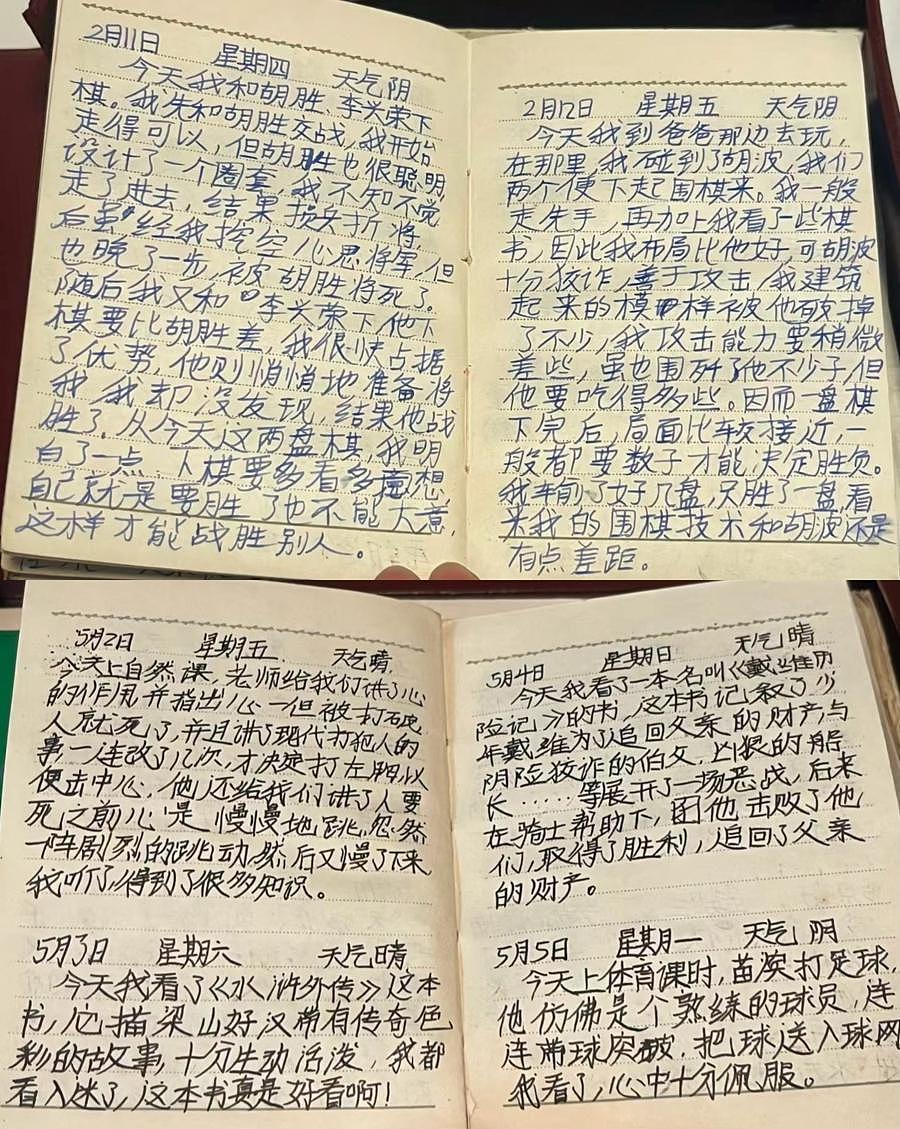 2月11日 星期四 天气阴
今天我和胡胜、李兴荣下
棋。我先和胡胜交战,我开始
走得可以,但胡胜也很聪明,
设计了一个圈套,我不知不觉
走了进去,结果损兵折将
后虽经我挖空心思将军,但
也晚了一步,被胡胜将死了。
随后我又和李兴荣下,他下
棋要比胡胜差,我很快占据
了优势,他则悄悄地准备将
我,我却没发现,结果他战
胜了。从今天这两盘棋,我明
白了一点 下棋要多看多想
自己就是要胜了也不能大意,
这样才能战胜别人。
2月12日 星期五 天气阴
今天我到爸爸那边去玩,
在那里,我碰到了胡波,我们
两个便下起围棋来。我一般
走先手,再加上我看了一些棋
书,因此我布局比他好,可胡波
十分狡诈,善于攻击,我建筑
起来的模样被他破掉
了不少,我攻击能力要稍微
差些,虽也围歼了他不少子,但
他要吃得多些。因而一盘棋
下完后,局面比较接近,一
般都要数子才能决定胜负。
我们了好几盘,只胜了一盘,看
来我的围棋技术和胡波还是
有点差距。
5月2日 星期五 天气晴
今天上自然课,老师给我们讲了心
的作用,并指出心一但被打破
人就死了,并且讲了现代打犯人的
事,一连改了几次,才决定打左胸,以
便击中心,他还给我们讲了人要
死之前心是慢慢地跳,忽然
一阵剧烈的跳动,然后又慢了下来
我听了,得到了很多知识。
5月3日 星期六 天气晴
今天我看了《水浒外传》这本
书,它描梁山好汉带有传奇色
彩的故事,十分生动活泼,我都
看入迷了,这本书真是好看啊!
5月4日 星期日 天气晴
今天我看了一本名叫《戴维历
险记》的书,这本书记录了少
年戴维为了追回父亲的财产,与
阴险狡诈的伯父,凶狠的船
长……等展开了一场恶战,后来
在骑士帮助下,他击败了他
们,取得了胜利,追回了父亲
的财产。
5月5日 星期一 天气阴
今天上体育课时,苗演打足球,
他仿佛是个熟练的球员,连
连带球突破,把球送入球网
我看了,心中十分佩服。